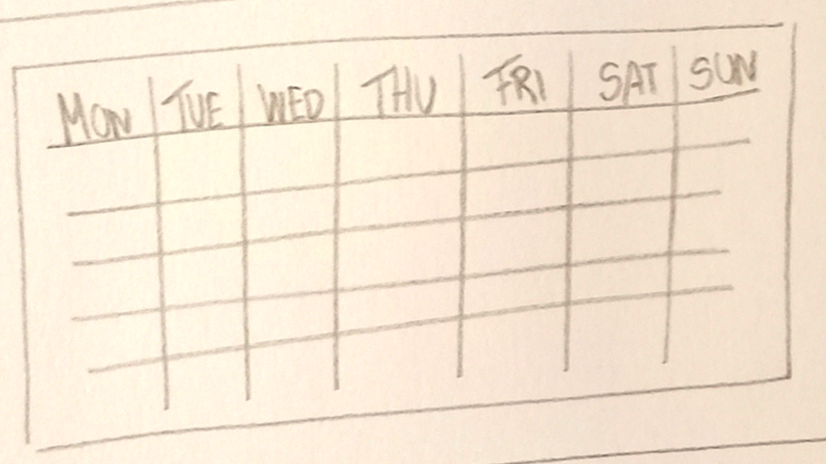 MON TUE WED THU FRI SAT SUN